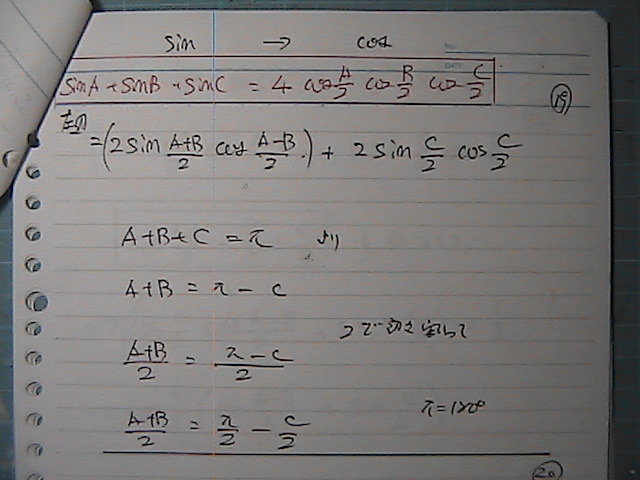 sin → cos
NO.
DATE
sinA + sinB + sinC = 4 cos A/2 cos B/2 cos C/2
⑲
左辺
= (2 sin (A+B)/2 cos (A-B)/2) + 2 sin C/2 cos C/2
A+B+C = π より
A+B = π - C
(A+B)/2 = (π - C)/2
π = 180°
(A+B)/2 = π/2 - C/2
⑳